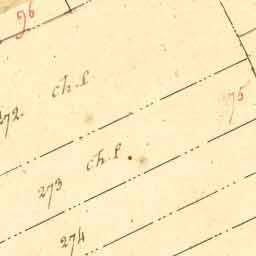 96
ch.f
272.
75
ch.f.
273
274